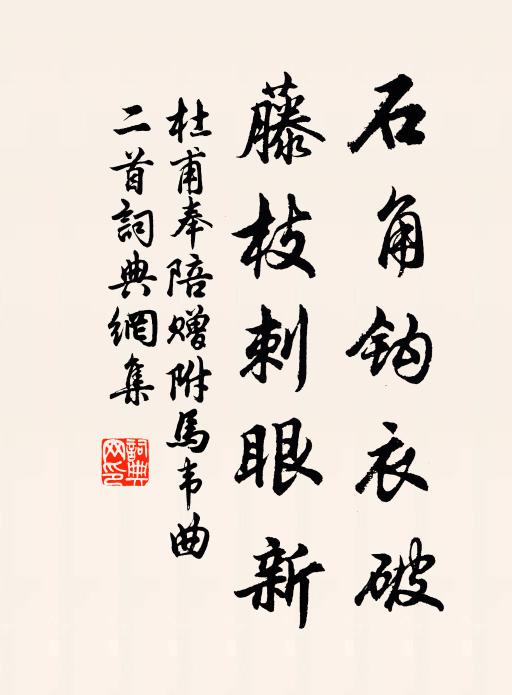 石角鈎衣破
藤枝刺眼新
杜甫奉陪赠附馬韦曲
二首詞典網集
詞典
网印